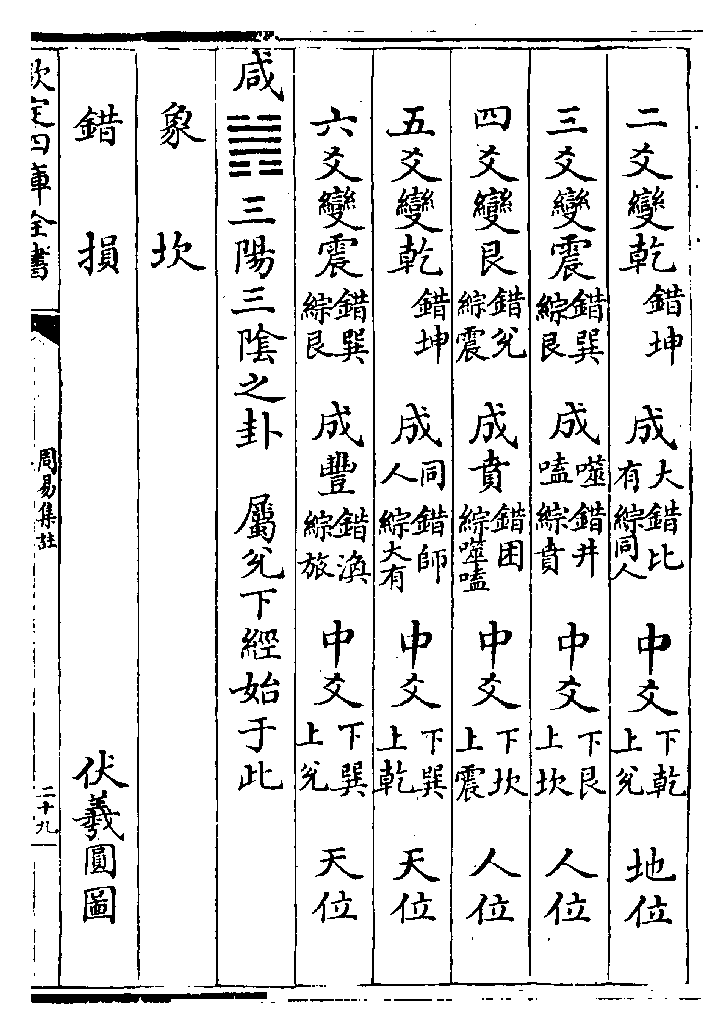 二爻變乾 錯坤 成大有 錯比綜同人 中爻下乾上兌 地位
三爻變震 錯巽綜艮 成噬嗑 錯井綜賁 中爻下艮上坎 人位
四爻變艮 錯兌綜震 成賁 錯困綜噬嗑 中爻下坎上震 人位
五爻變乾 錯坤 成同人 錯師綜大有 中爻下巽上乾 天位
六爻變震 錯巽綜艮 成豐 錯渙綜旅 中爻下巽上兌 天位
咸䷞三陽三陰之卦 屬兌下經始于此
象坎
錯損 伏羲圓圖
欽定四庫全書 周易集註 二十九